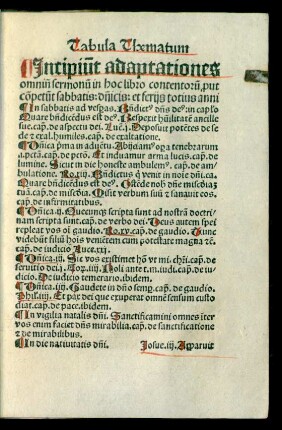 Tabula Thematum
Incipiũt adaptationes
omniũ sermonũ in hoc libro contentorũ, put
cõpetũt sabbatis: dñicis: et ferijs totius anni
In sabbatis ad vesꝑas. Bñdict⁹ dñs de⁹: in cap̃lo
Quare bñdicẽdus est de⁹. Respexit hũilitatẽ ancille
sue. cap̃. de aspectu dei. Luc̃.j. Deposuit potẽtes de se
de ⁊ exal. humiles. cap̃. de exaltatione.
Dñica p̃ma in adũetu. Abijciam⁹ oꝑa tenebrarum
.j. petã. cap̃. de petõ. Et induamur arma lucis. cap̃. de
lumine. Sicut in die honeste ambulem⁹. cap̃. de am-
bulatione. Ro.xiij. Bñdictus q̃ venit in noĩe dñi. cap̃.
Quare bñdicẽdus est de⁹. Oñde nob̃ dñe misc̃diaȝ
tuã. cap̃. de misc̃dia. Misit verbum suũ ⁊ sanauit eos.
cap̃. de infirmitatibus.
Dñica.ij. Quecunqȝ scripta sunt ad nostrã doctri-
nam scripta sunt. cap̃. de verbo dei. Deus autem spei
repleat vos oĩ gaudio. Ro.xv. cap̃. de gaudio. Tunc
videbũt filiũ hoĩs venietẽm cum potestate magna ⁊c̃.
cap̃. de iudicio Luce.xxj.
Dñica.iij. Sic vos existimet hõ vt mi. chr̃i. cap̃. de
seruitio dei.j. Cor.iiij. Noli ante t.m. iudi. cap̃. de iu-
dicio. De iudicio temerario. ibidem.
Dñica.iiij. Gaudete in dño semꝑ. cap̃. de gaudio.
Phil.iiij. Et pax dei que exuperat omnẽ sensum custo
diat. cap̃. de pace. ibidem.
In vigilia natalis dñi. Sanctificamini omnes iter
vos enim faciet dñs mirabilia. cap̃. de sanctificatione
⁊ de mirabilibus. Josue.iij.
In die natiuitatis dñi. Apparuit